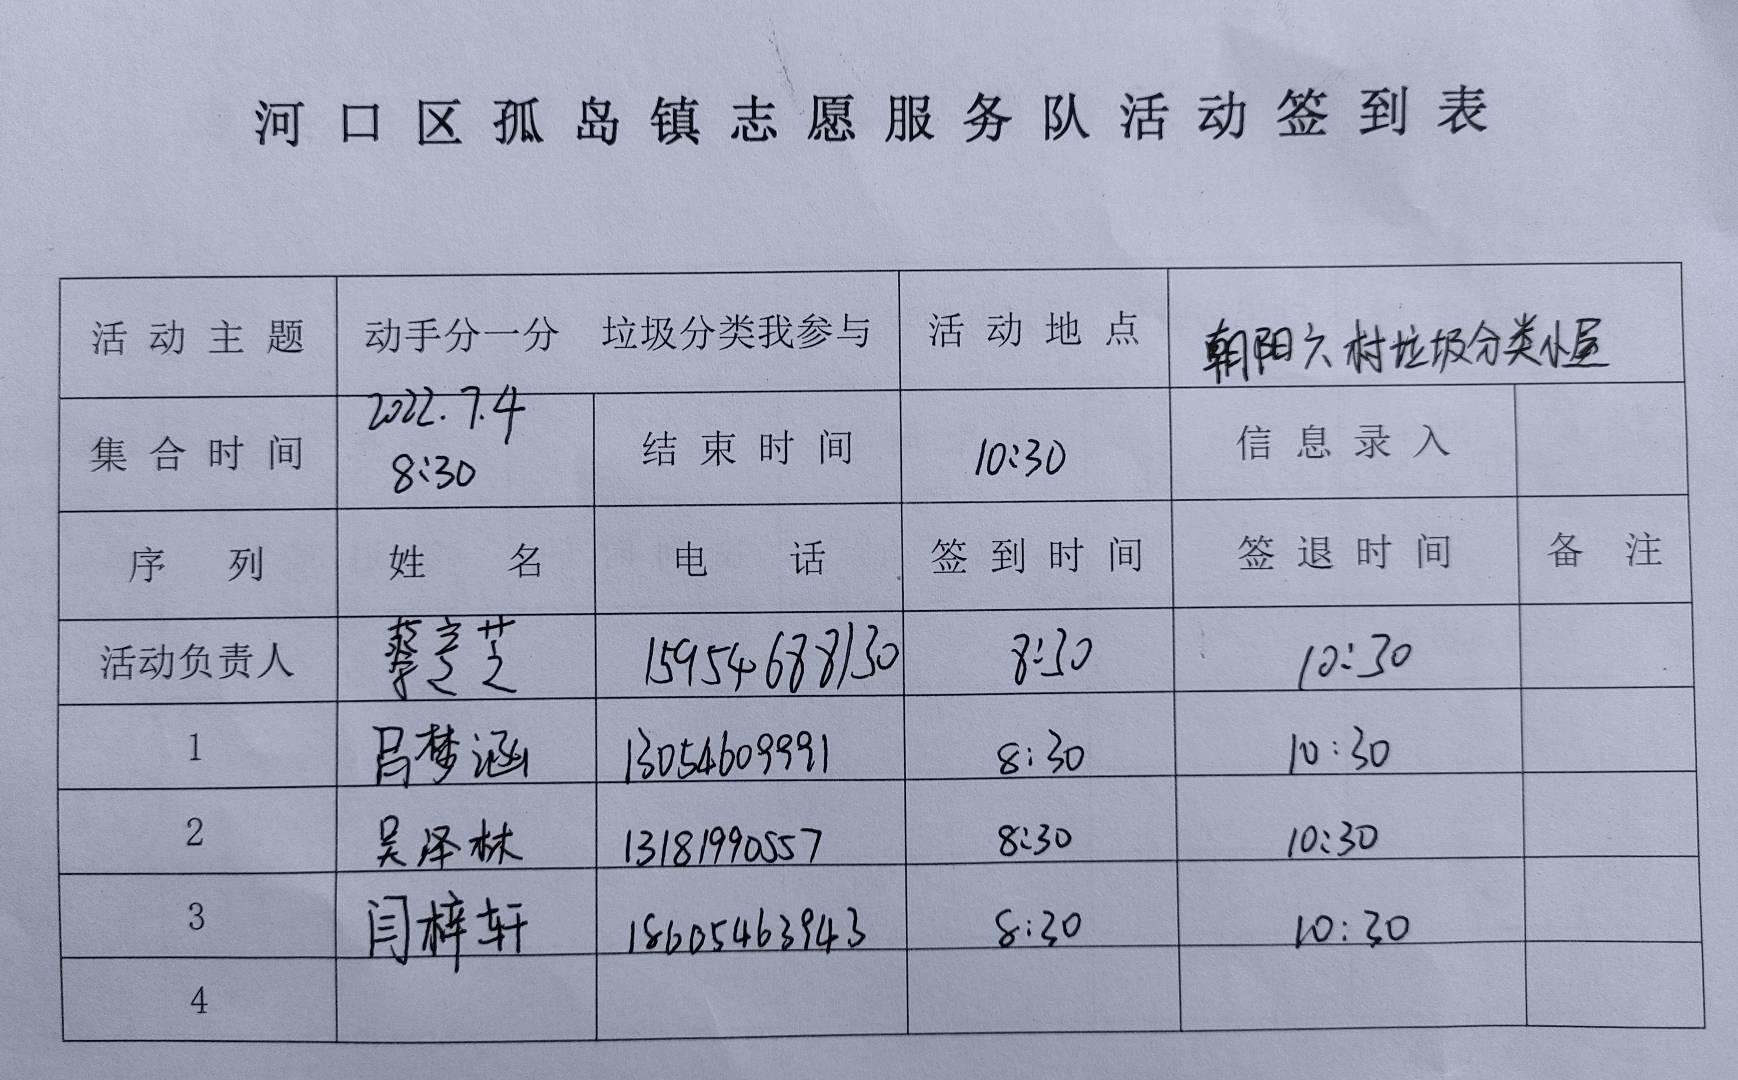 河口区孤岛镇志愿服务队活动签到表
活动主题 动手分一分 垃圾分类我参与 活动地点 朝阳六村垃圾分类小屋
集合时间 2022.7.4 8:30 结束时间 10:30 信息录入
序列 姓名 电话 签到时间 签退时间 备注
活动负责人 蔡彦芝 15954688130 8:30 10:30
1 吕梦涵 13054609991 8:30 10:30
2 吴泽林 13181990557 8:30 10:30
3 闫梓轩 18605463943 8:30 10:30
4